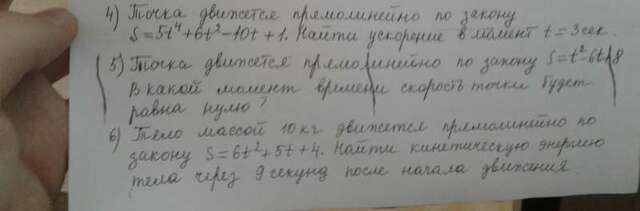 4) Точка движется прямолинейно по закону
S=5t⁴+6t²-10t+1. Найти ускорение в момент t=3сек.
5) Точка движется прямолинейно по закону S=t²-6t+8
В какой момент времени скорость точки будет
равна нулю?
6) Тело массой 10кг движется прямолинейно по
закону S=6t²+5t+4. Найти кинетическую энергию
тела через 9 секунд после начала движения.